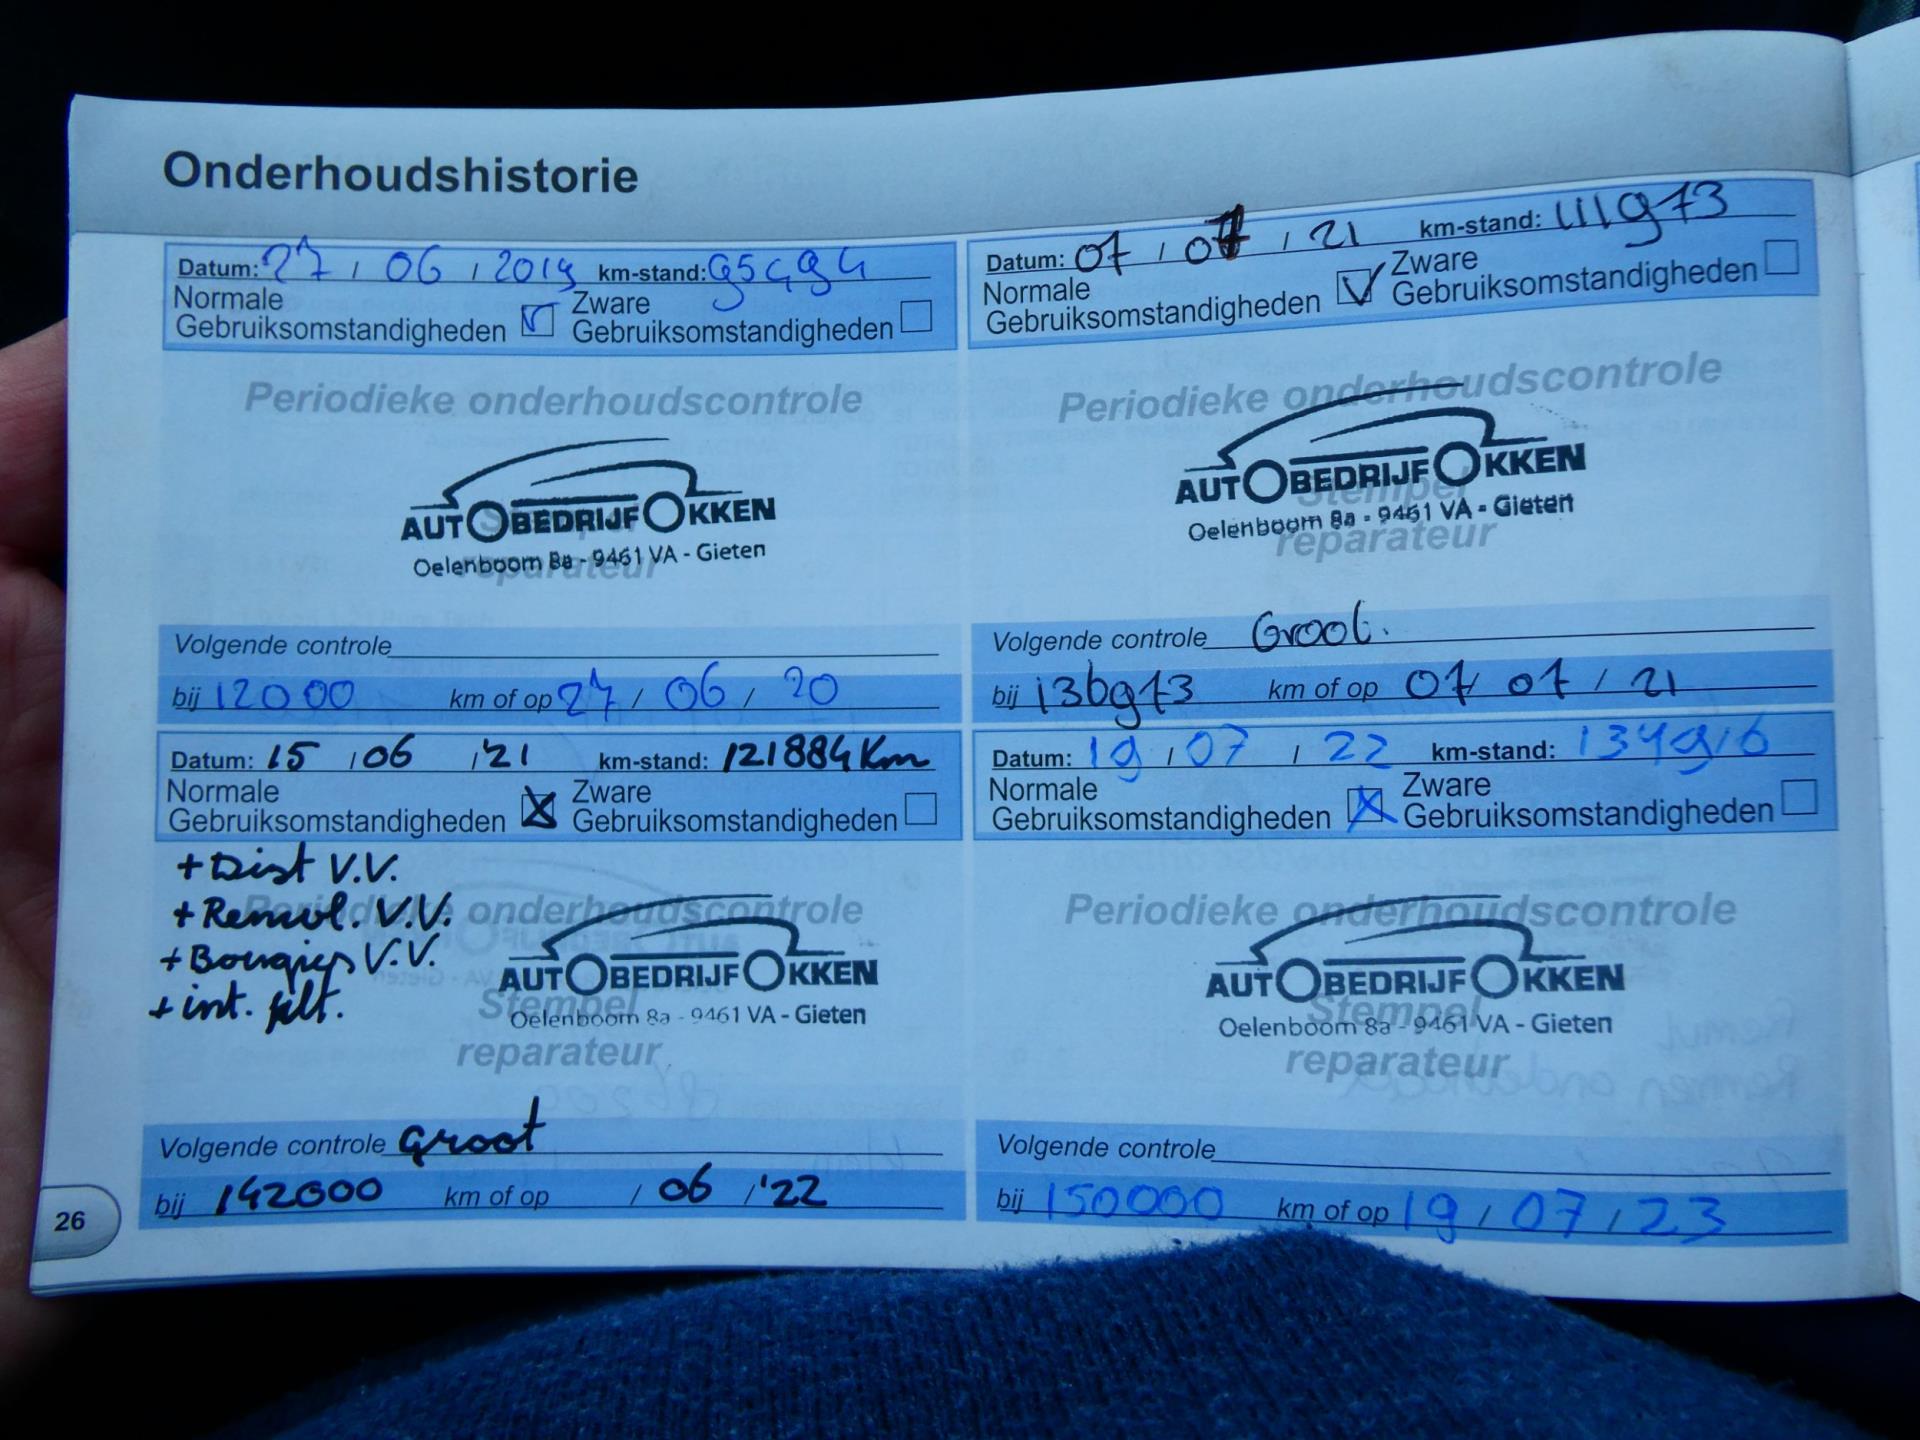 Onderhoudshistorie
Datum: 27 / 06 / 2019 km-stand: 95494
Normale Gebruiksomstandigheden
Zware Gebruiksomstandigheden
Periodieke onderhoudscontrole
Stempel reparateur
AUTOBEDRIJF OKKEN
Oelenboom 8a - 9461 VA - Gieten
Volgende controle
bij 12000 km of op 27 / 06 / 20
Datum: 07 / 07 / 21 km-stand: 111973
Normale Gebruiksomstandigheden
Zware Gebruiksomstandigheden
Periodieke onderhoudscontrole
Stempel reparateur
AUTOBEDRIJF OKKEN
Oelenboom 8a - 9461 VA - Gieten
Volgende controle Groot.
bij 136973 km of op 07 / 07 / 21
Datum: 15 / 06 / '21 km-stand: 121884 Km
Normale Gebruiksomstandigheden
Zware Gebruiksomstandigheden
+ Dist V.V.
+ Remvl. V.V.
+ Bougies V.V.
+ int. filt.
Periodieke onderhoudscontrole
Stempel reparateur
AUTOBEDRIJF OKKEN
Oelenboom 8a - 9461 VA - Gieten
Volgende controle groot
bij 142000 km of op / 06 / '22
Datum: 19 / 07 / 22 km-stand: 134916
Normale Gebruiksomstandigheden
Zware Gebruiksomstandigheden
Periodieke onderhoudscontrole
Stempel reparateur
AUTOBEDRIJF OKKEN
Oelenboom 8a - 9461 VA - Gieten
Volgende controle
bij 150000 km of op 19 / 07 / 23
26